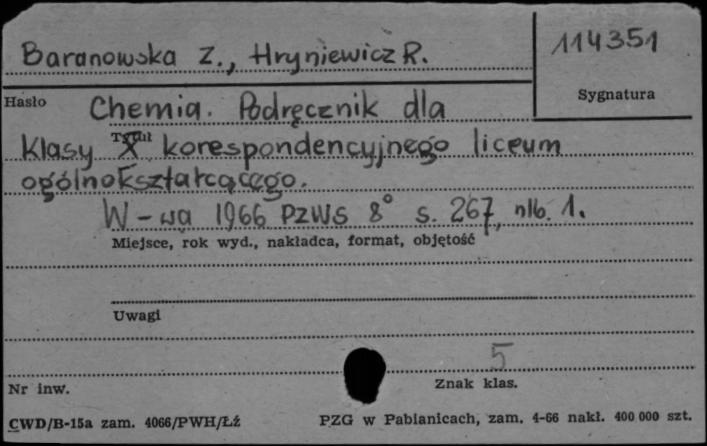 Baranowska Z., Hryniewicz R.
114351
Hasło
Sygnatura
Chemia. Podręcznik dla
Tytuł
klasy X korespondencyjnego liceum
ogólnokształcącego.
W-wa 1966 PZWS 8° s. 267, nlb. 1.
Miejsce, rok wyd., nakładca, format, objętość
Uwagi
5
Nr inw.
Znak klas.
CWD/B-15a zam. 4066/PWH/Łź
PZG w Pabianicach, zam. 4-66 nakł. 400 000 szt.